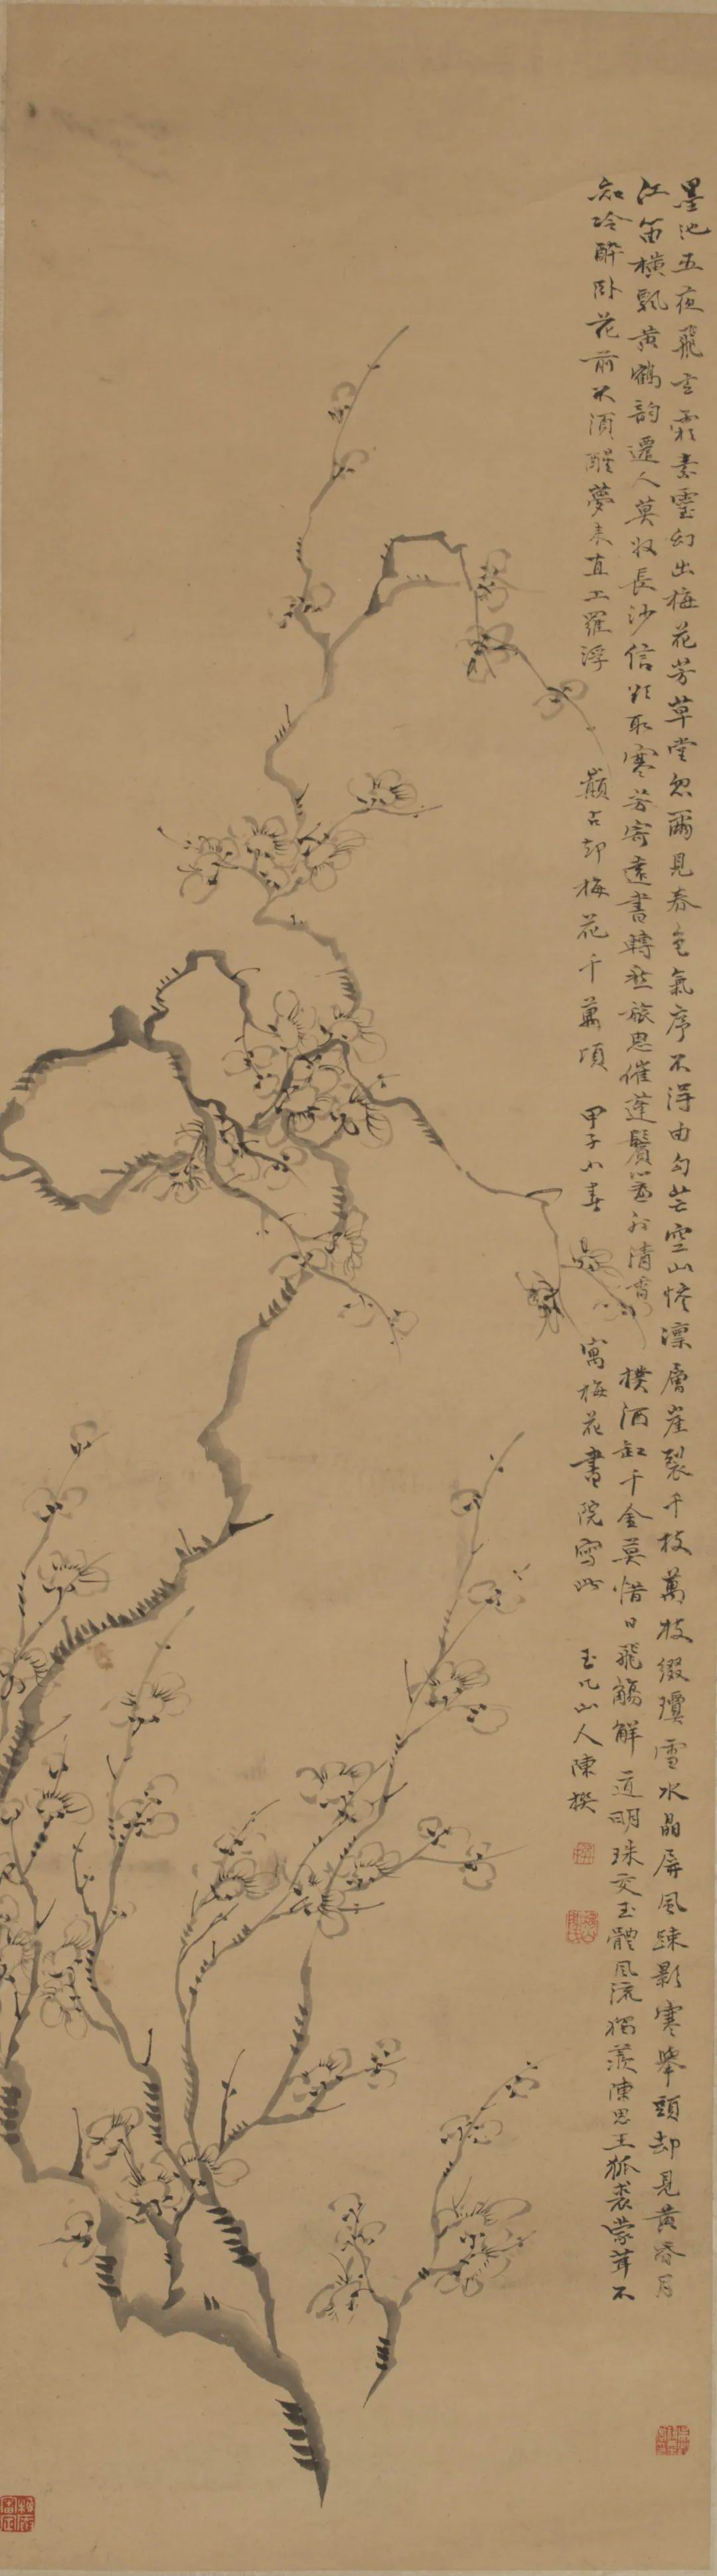 墨池五夜飛玄霜素靈幻出梅花芳草堂忽爾見春色氣序不得由勾芒空山慘凜層崖裂千枝萬枝綴瓊雪水晶屏風疎影寒舉頭却見黃昏月
江笛橫飄黃鶴韵遷人莫收長沙信欲取寒芳寄遠書轉愁旅思催蓬鬢清香撲酒缸千金莫惜日飛觴解道明珠交玉體風流獨羨陳思王狐裘蒙茸不
知冷醉卧花前不須醒夢來直上羅浮巔占却梅花千萬頃 甲子小春 寓梅花書院寫此 玉几山人陳撰